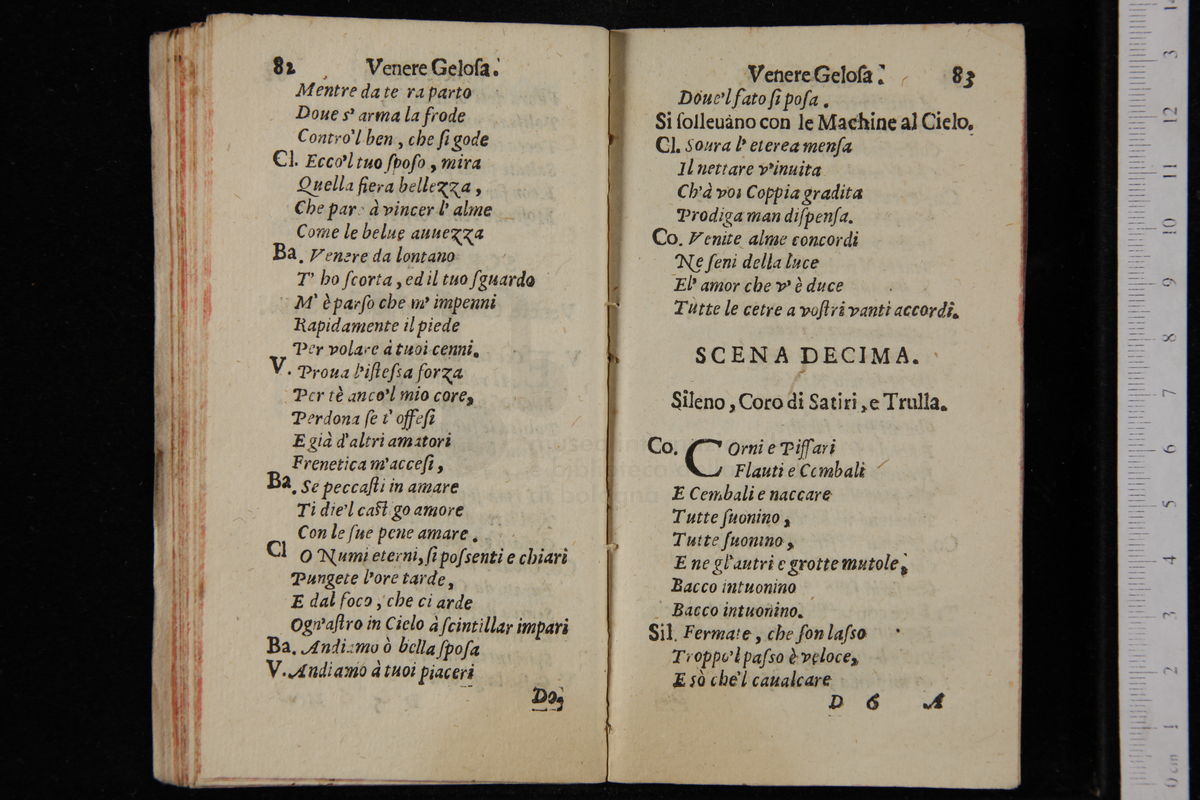 82 Venere Geloſa.
Mentre da te ra parto
Doue s' arma la frode
Contro'l ben, che ſi gode
Cl. Ecco'l tuo ſpoſo, mira
Quella fiera bellezza,
Che par à vincer l' alme
Come le belue auuezza
Ba. Venere da lontano
T' ho ſcorta, ed il tuo ſguardo
M' è parſo che m' impenni
Rapidamente il piede
Per volare à tuoi cenni.
V. Proua l'iſteſsa forza
Per tè anco'l mio core,
Perdona ſe t' offeſi
E già d'altri amatori
Frenetica m'acceſi,
Ba. Se peccaſti in amare
Ti die'l caſtigo amore
Con le ſue pene amare.
Cl O Numi eterni, ſi poſsenti e chiari
Pungete l'ore tarde,
E dal foco, che ci arde
Ogn'aſtro in Cielo à ſcintillar impari
Ba. Andiamo ò bella ſpoſa
V. Andiamo à tuoi piaceri
Do,
Venere Geloſa. 83
Doue'l fato ſi poſa.
Si ſolleuano con le Machine al Cielo.
Cl. Soura l' eterea menſa
Il nettare v'inuita
Ch'à voi Coppia gradita
Prodiga man diſpenſa.
Co. Venite alme concordi
Ne ſeni della luce
E l' amor che v' è duce
Tutte le cetre a voſtri vanti accordi.
SCENA DECIMA.
Sileno, Coro di Satiri, e Trulla.
Co. COrni e Piffari
Flauti e Cembali
E Cembali e naccare
Tutte ſuonino,
Tutte ſuonino,
E ne gl'autri e grotte mutole,
Bacco intuonino
Bacco intuonino.
Sil. Fermate, che ſon laſso
Troppo'l paſso è veloce,
E sò che'l caualcare
D 6 A
museo internazionale
biblioteca
di bologna